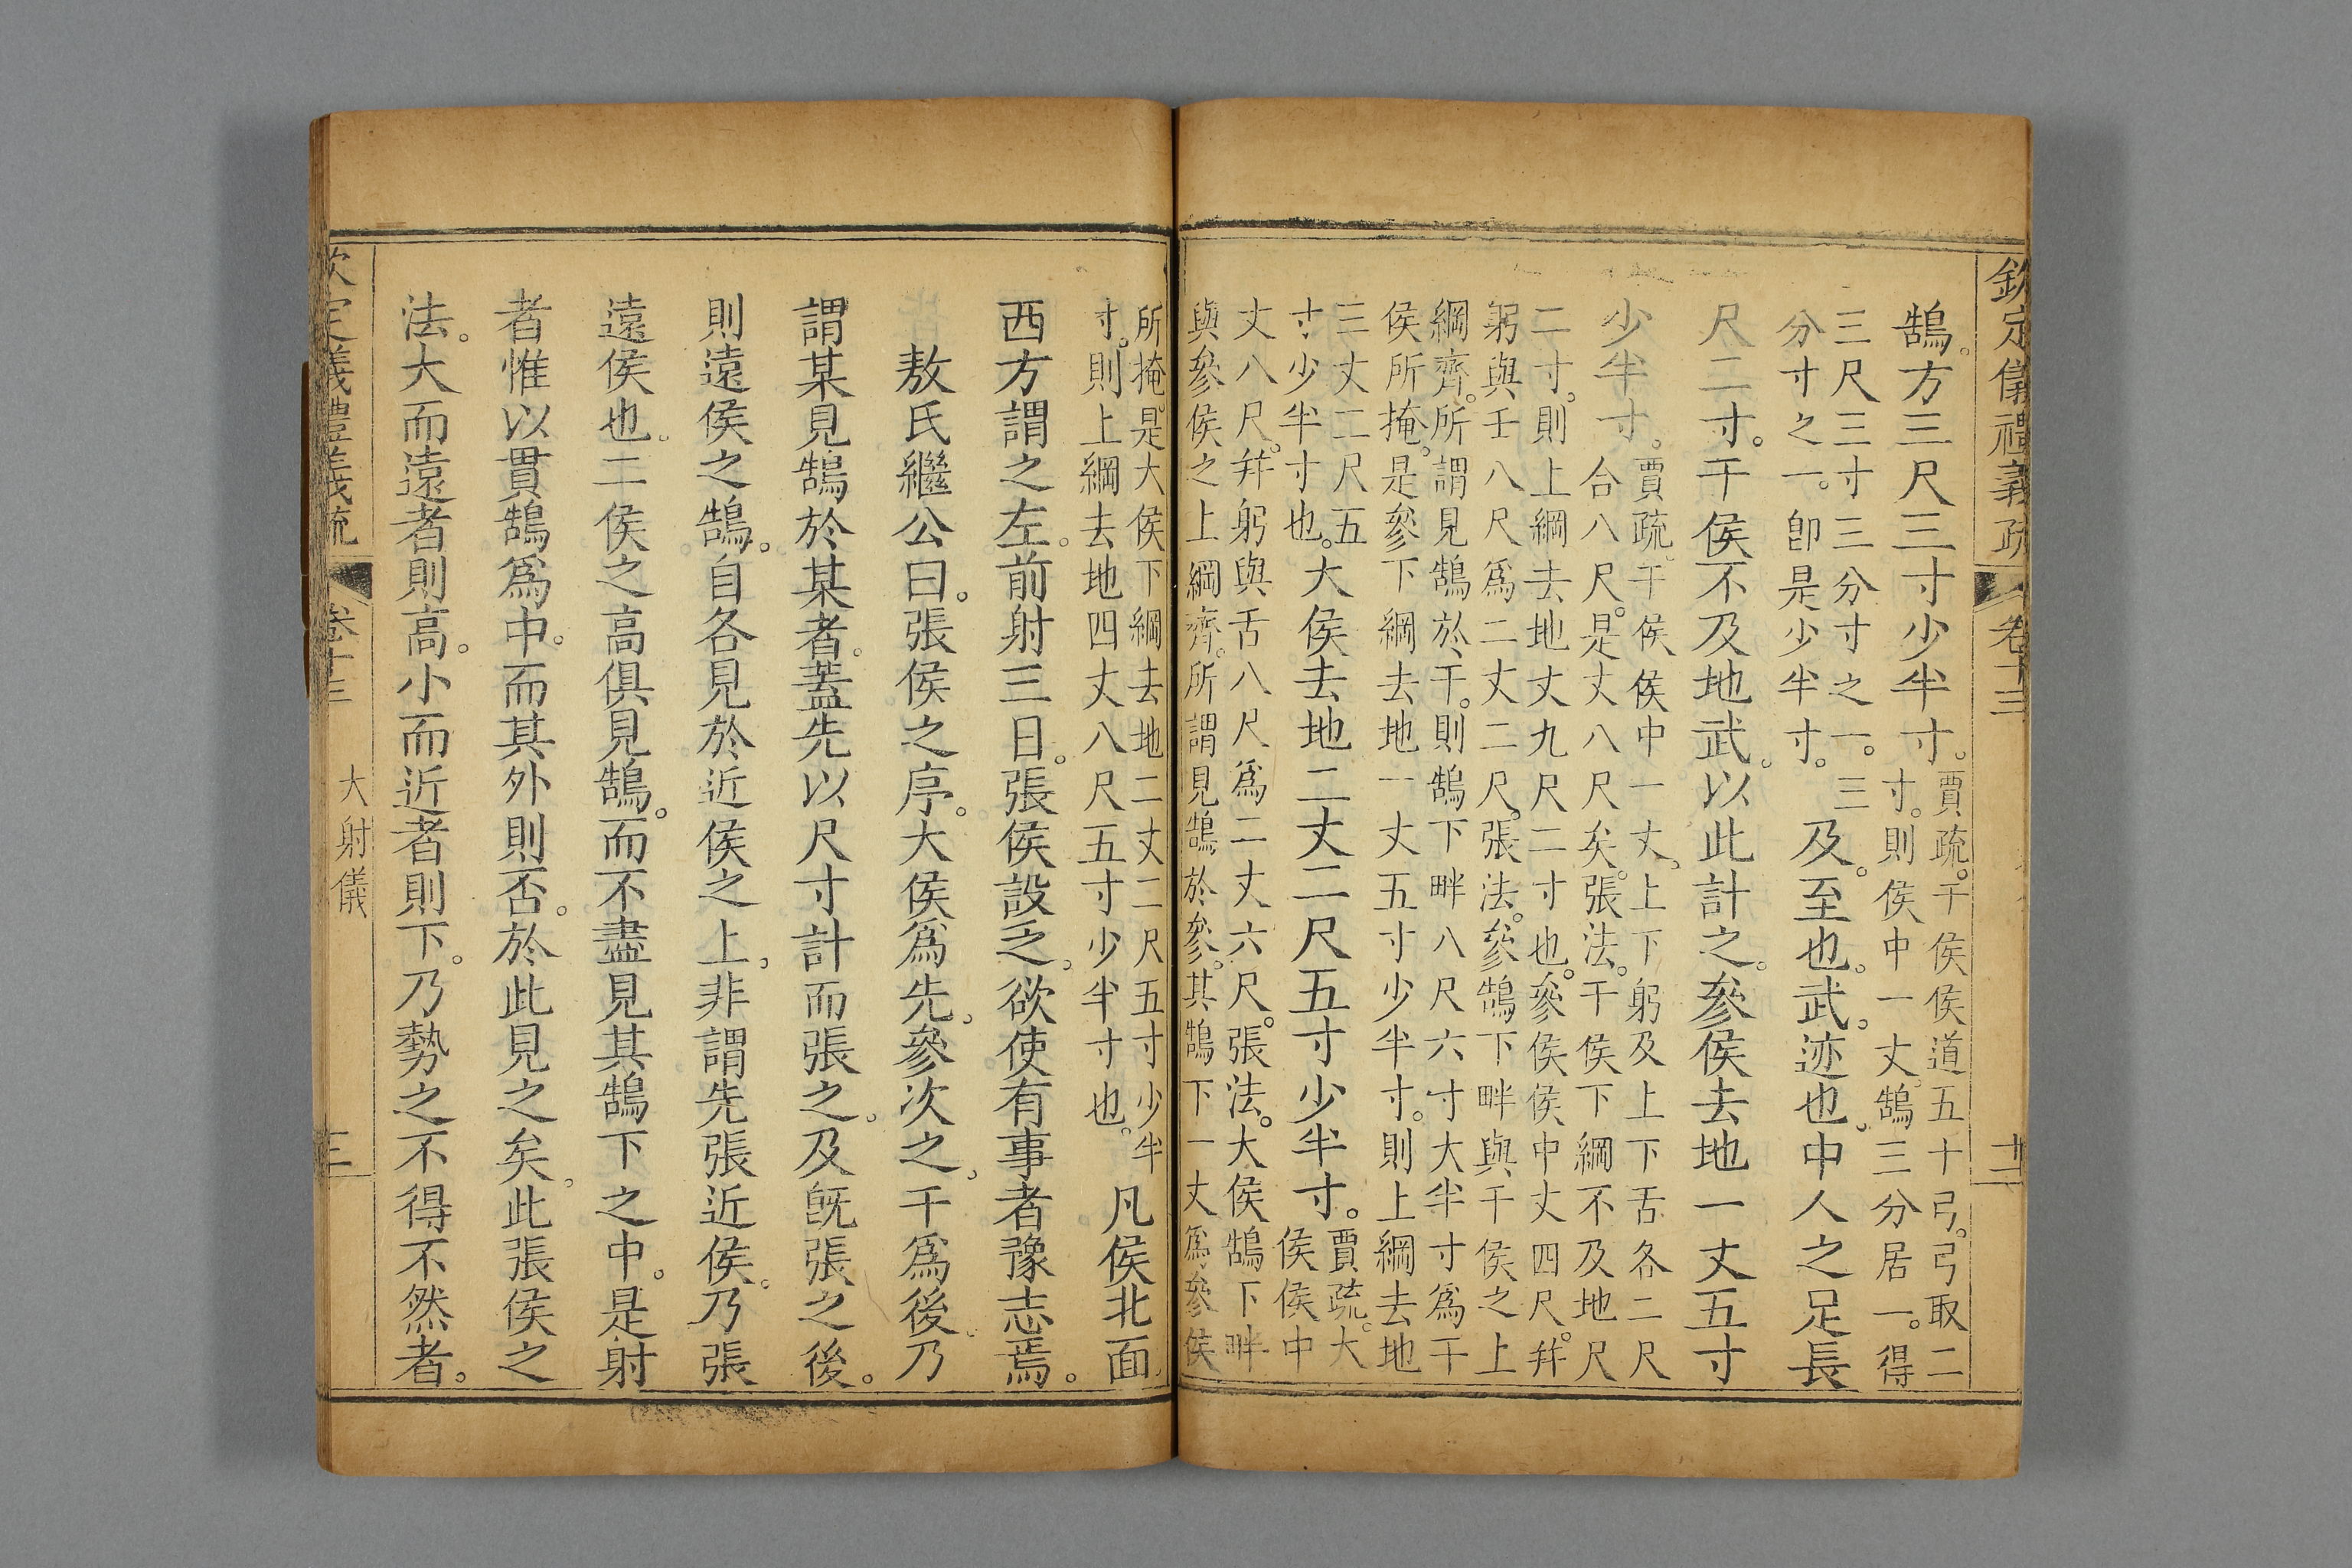 欽定儀禮義疏 卷十三
鵠。方三尺三寸少半寸。
賈疏。干侯侯道五十弓。弓取二
寸。則侯中一丈。鵠三分居一。得
三尺三寸三分寸之一。三
分寸之一。卽是少半寸。
及。至也。武。迹也。中人之足長
尺二寸。干侯不及地武。以此計之。參侯去地一丈五寸
少半寸。
賈疏。干侯侯中一丈。上下躬及上下舌各二尺
合八尺。是丈八尺矣。張法。干侯下綱不及地尺
二寸。則上綱去地丈九尺二寸也。參侯侯中丈四尺。幷
躬與壬八尺爲二丈二尺。張法。參鵠下畔與干侯之上
綱齊。所謂見鵠於干。則鵠下畔八尺六寸大半寸爲干
侯所掩。是參下綱去地一丈五寸少半寸。則上綱去地
三丈二尺五
寸少半寸也。
大侯去地二丈二尺五寸少半寸。
賈疏。大
侯侯中
丈八尺。幷躬與舌八尺爲二丈六尺。張法。大侯鵠下畔
與參侯之上綱齊。所謂見鵠於參。其鵠下一丈爲參侯
所掩。是大侯下綱去地二丈二尺五寸少半
寸。則上綱去地四丈八尺五寸少半寸也。
凡侯北面
西方謂之左。前射三日。張侯設乏。欲使有事者豫志焉。
敖氏繼公曰。張侯之序。大侯爲先。參次之。干爲後。乃
謂某見鵠於某者。蓋先以尺寸計而張之。及旣張之後。
則遠侯之鵠。自各見於近侯之上。非謂先張近侯。乃張
遠侯也。二侯之高俱見鵠。而不盡見其鵠下之中。是射
者惟以貫鵠爲中。而其外則否。於此見之矣。此張侯之
法。大而遠者則高。小而近者則下。乃勢之不得不然者。
欽定儀禮義疏 卷十三 大射儀